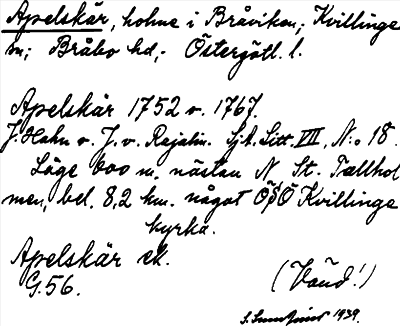 Apelskär, holme i Bråviken; Kvillinge
sn; Bråbo hd; Östergötl. l.
Apelskär 1752 o. 1767.
J. Hahn o. J. v. Rajalin. Sjk. Litt. VII, N:o 18.
Läge 600 m. nästan N St. Tallhol
men, bel. 8,2 km. något ÖSÖ Kvillinge
kyrka.
Apelskär ek.
G. 56.
(Vaud!)
1939.